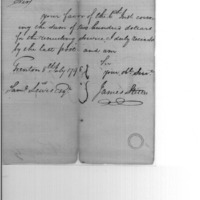 Sir
Your favor of the 6th Inst. cover-
ing the sum of two hundred dollars
for the recruiting service, I duly received
by the last post and am
Sir
your Ob. Serv.
Trenton 8th July 179
Saml Lewis Esqr
James